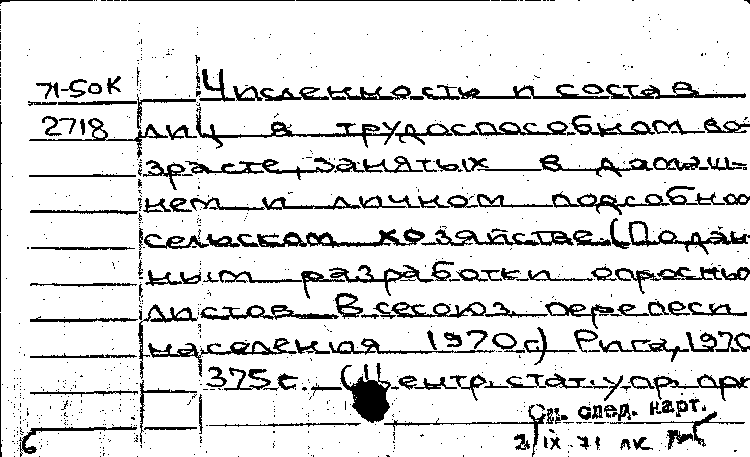 71-50К Численность и состав
2718 лиц в трудоспособном во-
зрасте, занятых в домаш-
нем и личном подсобном
сельском хозяйстве. (По дан-
ным разработки опросных
листов Всесоюз. переписи
населения 1970 г.) Рига, 1970
375 с. (Центр. стат. упр. при
См. след. карт.
2/IX 71 лк
6